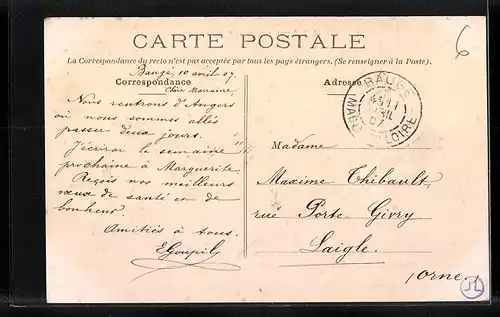 6
CARTE POSTALE
La Correspondance du recto n'est pas acceptée par tous les pays étrangers. (Se renseigner à la Poste).
Baugé, 10 avril 07.
Correspondance
Chère Marraine,
Nous rentrons d'Angers
où nous sommes allés
passer deux jours.
J'écrirai la semaine
prochaine à Marguerite.
Reçois nos meilleurs
vœux de santé et de
bonheur.
Amitiés à tous.
EGoupil
Adresse
BAUGÉ
11
AVRIL
07
MAINE
LOIRE
Madame
Maxime Thibault,
rue Porte Givry
Laigle.
(Orne.)
JL